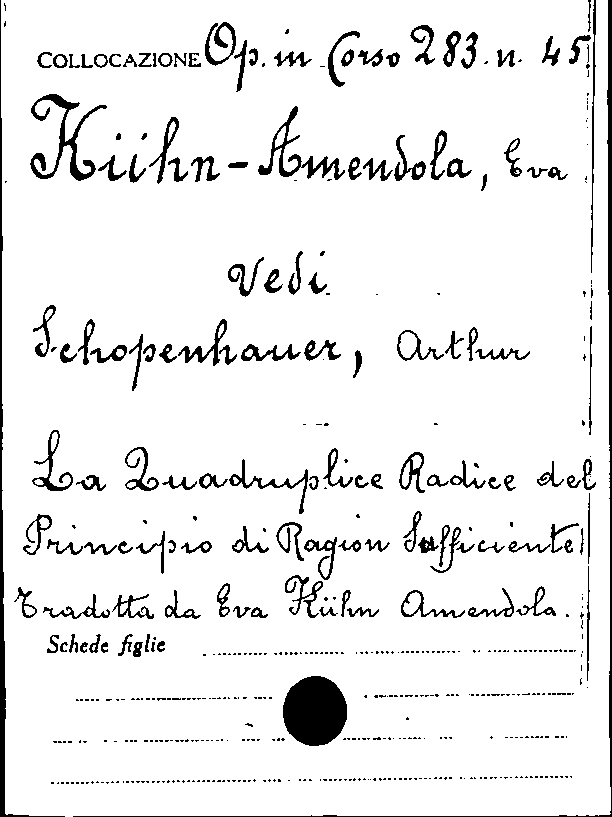 COLLOCAZIONE Op. in Corso 283. n. 45
Kühn-Amendola, Eva
Vedi
Schopenhauer, Arthur
La Quadruplice Radice del
Principio di Ragion Sufficiente
Tradotta da Eva Kühn Amendola.
Schede figlie